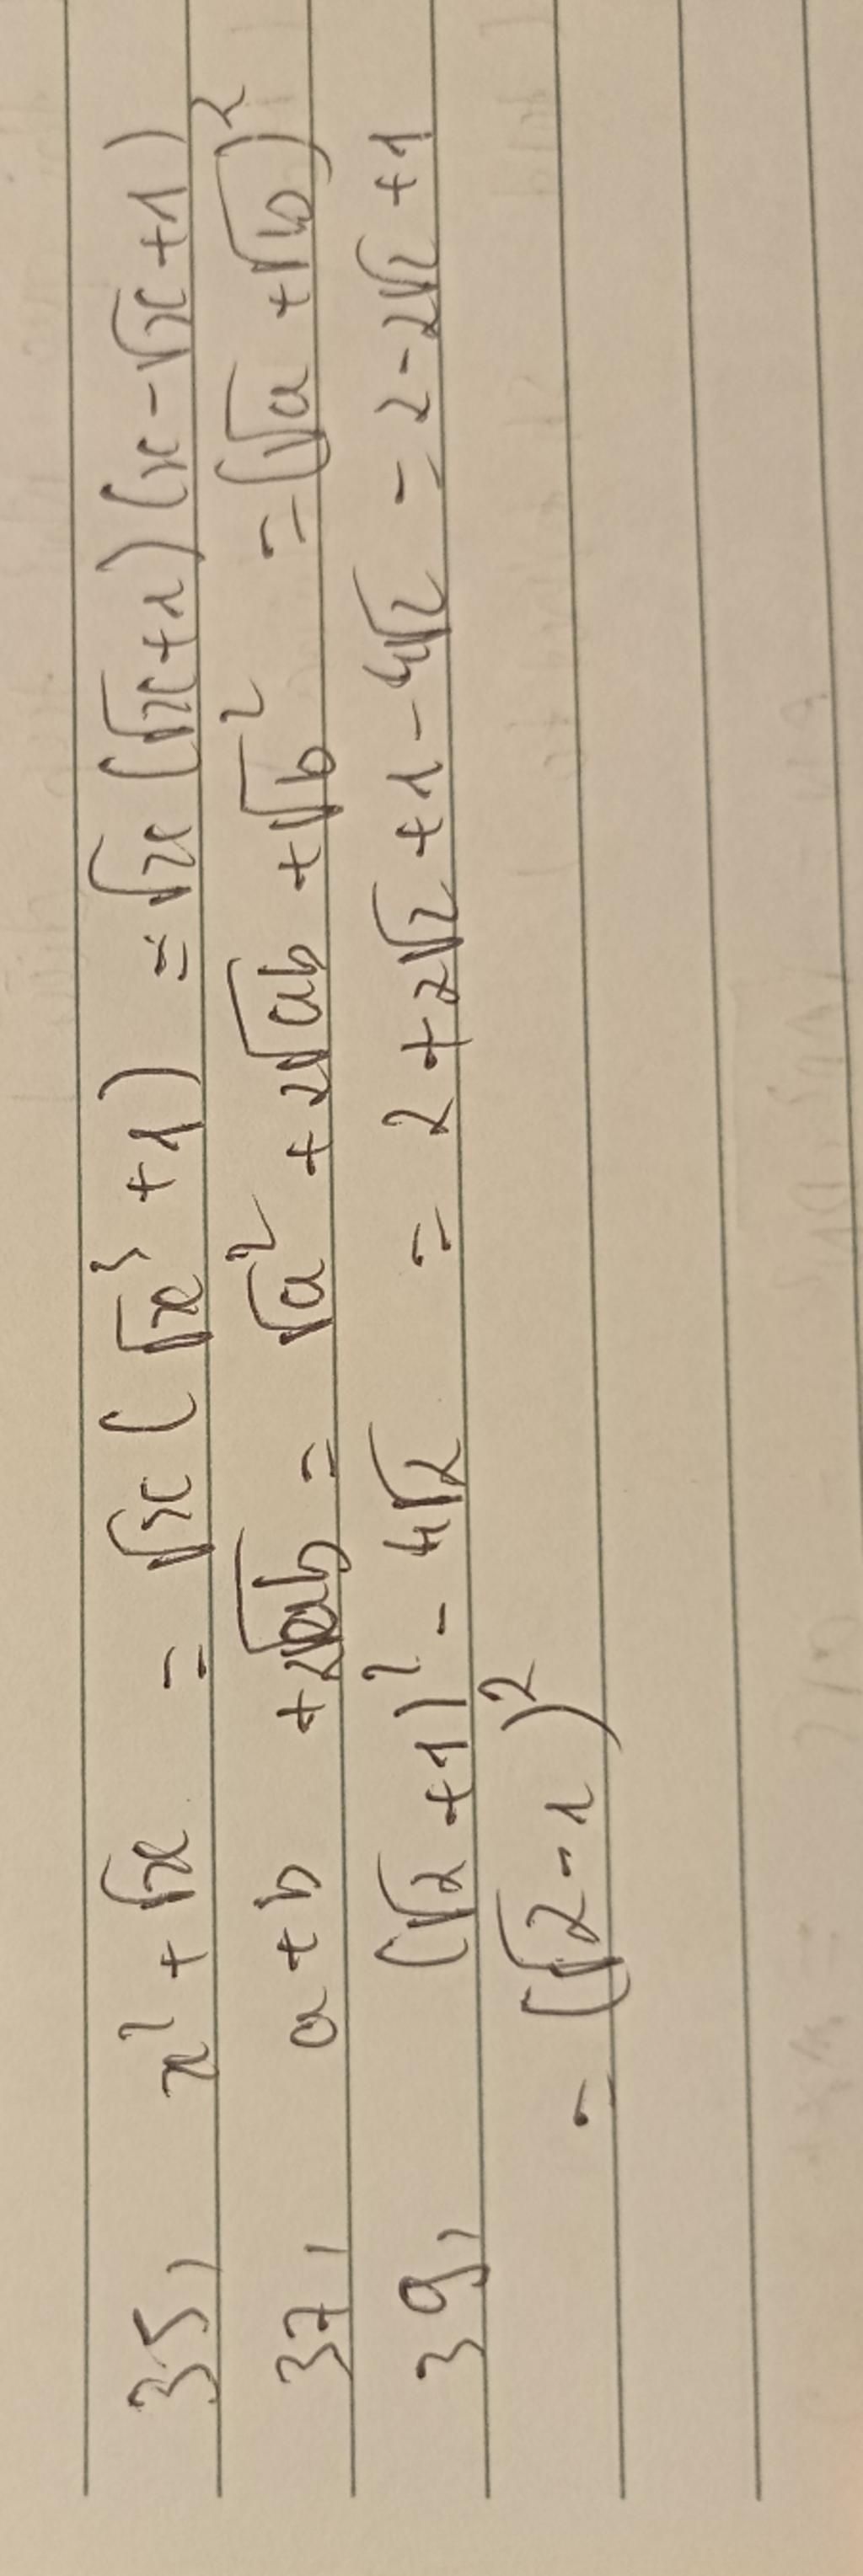 35, x² + √x = √x (√x³ + 1) = √x (√x + 1) (x - √x + 1)
37, a + b + 2√ab = √a² + 2√ab + √b² = (√a + √b)²
39, (√2 + 1)² - 4√2 = 2 + 2√2 + 1 - 4√2 = 2 - 2√2 + 1
= (√2 - 1)²